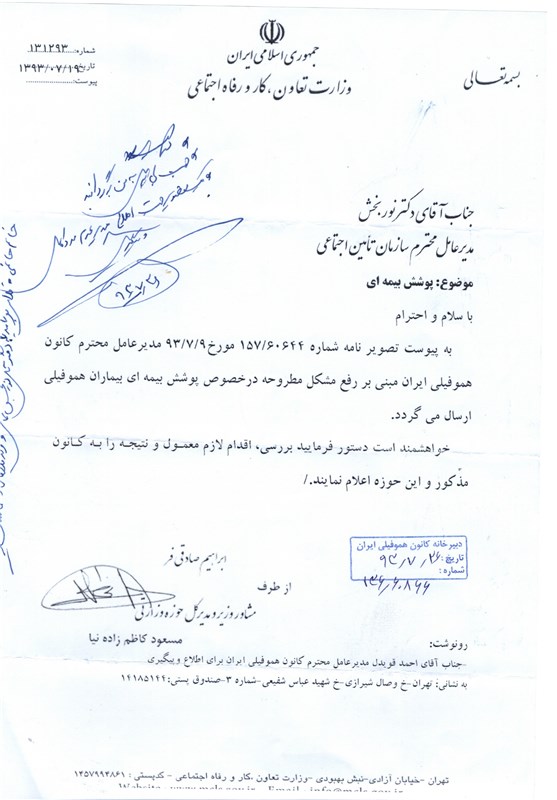 جمهوری اسلامی ایران
وزارت تعاون، کار و رفاه اجتماعی
بسمه تعالی
شماره: ۱۳۱۲۹۳
تاریخ: ۱۳۹۳/۰۷/۱۹
پیوست:
جناب آقای دکتر نوربخش
مدیرعامل محترم سازمان تأمین اجتماعی
موضوع: پوشش بیمه ای
با سلام و احترام
به پیوست تصویر نامه شماره ۱۵۷/۶۰۶۴۴ مورخ ۹۳/۷/۹ مدیرعامل محترم کانون
هموفیلی ایران مبنی بر رفع مشکل مطروحه درخصوص پوشش بیمه ای بیماران هموفیلی
ارسال می گردد.
خواهشمند است دستور فرمایید بررسی، اقدام لازم معمول و نتیجه را به کانون
مذکور و این حوزه اعلام نمایند./
ابراهیم صادقی فر
از طرف
مشاور وزیر و مدیرکل حوزه وزارتی
مسعود کاظم زاده نیا
دبیرخانه کانون هموفیلی ایران
تاریخ: ۹۳/۷/۲۶
شماره:
رونوشت:
-جناب آقای احمد قویدل مدیرعامل محترم کانون هموفیلی ایران برای اطلاع و پیگیری
به نشانی: تهران-خ وصال شیرازی-خ شهید عباس شفیعی-شماره ۳-صندوق پستی: ۱۴۱۸۵۱۴۴
تهران -خیابان آزادی-نبش بهبودی -وزارت تعاون ،کار و رفاه اجتماعی - کدپستی : ۱۴۵۷۹۹۴۸۶۱